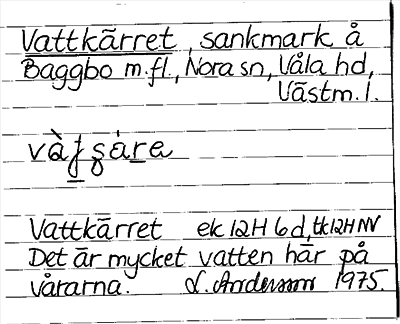 Vattkärret, sankmark å
Baggbo m.fl., Nora sn, Våla hd,
Västm. l.
Vattkärret ek 12H 6d, tk12H NV
Det är mycket vatten här på
vårarna. L. Andersson 1975.